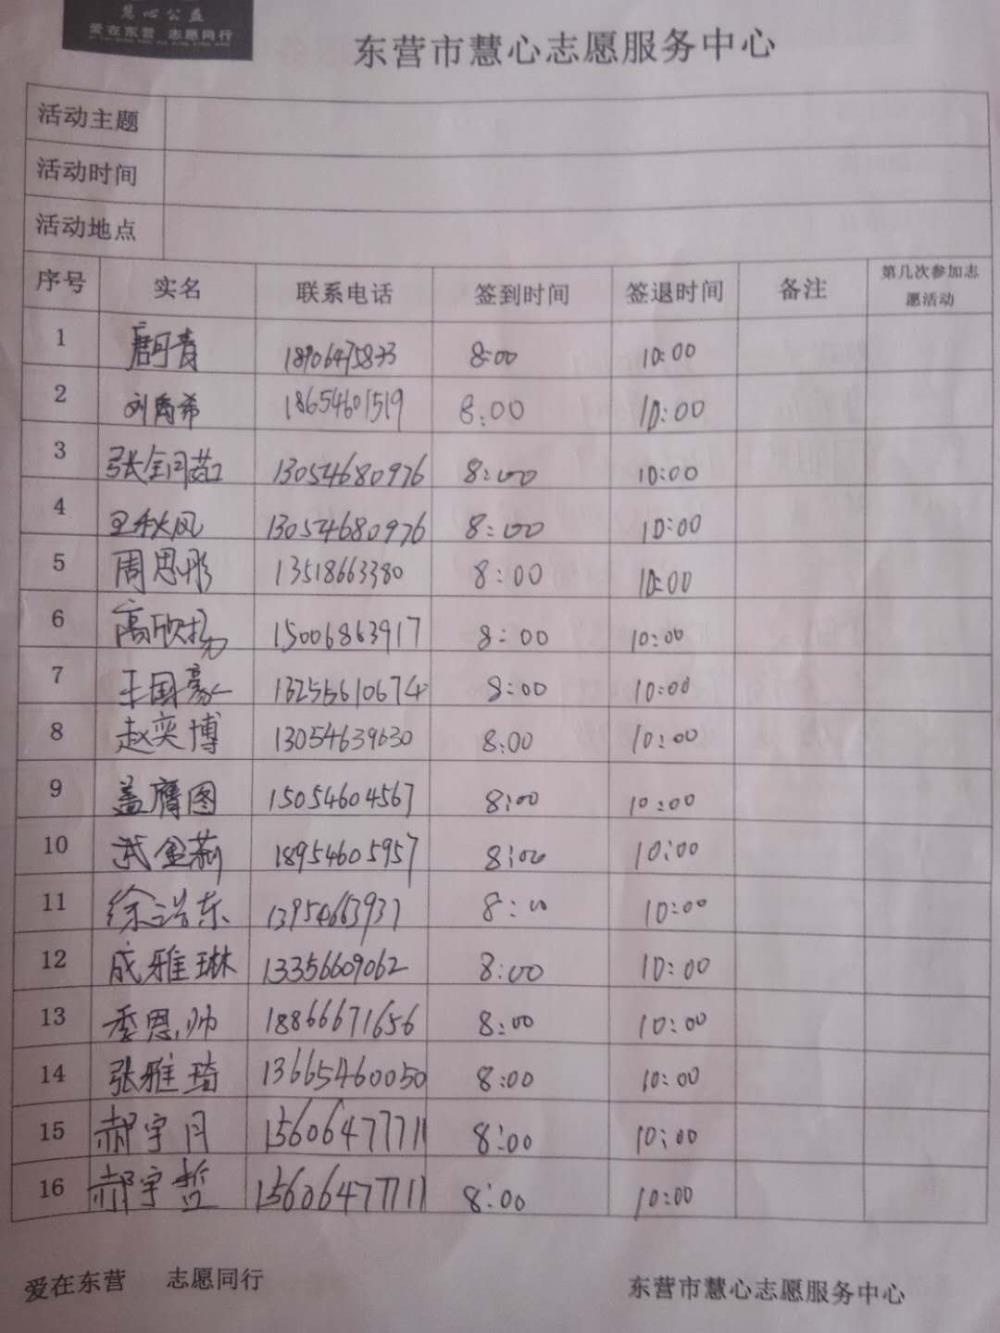 慧心公益
爱在东营 志愿同行
东营市慧心志愿服务中心
活动主题
活动时间
活动地点
序号 实名 联系电话 签到时间 签退时间 备注 第几次参加志
愿活动
1 唐可青 18906475833 8:00 10:00
2 刘禹希 18654601519 8:00 10:00
3 张 13054680976 8:00 10:00
4 王秋风 13054680976 8:00 10:00
5 周思彤 13518663380 8:00 10:00
6 高欣扬 15006863917 8:00 10:00
7 王国豪 8:00 10:00
8 赵奕博 13054639630 8:00 10:00
9 盖膺图 15054604567 8:00 10:00
10 武金莉 18954605957 8:00 10:00
11 徐浩东 13954663937 8:00 10:00
12 成雅琳 13356609062 8:00 10:00
13 季恩帅 18866671656 8:00 10:00
14 张雅琦 13665460050 8:00 10:00
15 郝宇月 15606477711 8:00 10:00
16 郝宇哲 15606477711 8:00 10:00
爱在东营 志愿同行 东营市慧心志愿服务中心